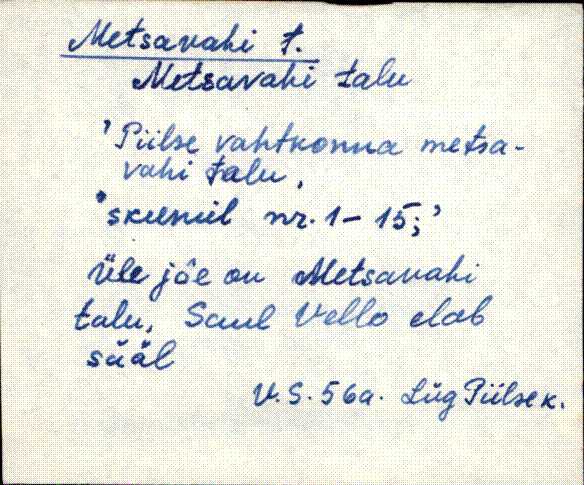 Metsavahi t.
Metsavahi talu
'Piilse vahtkonna metsa-
vahi talu,
skeemil nr. 1-15;'
Üle jõe on Metsavahi
talu, Saul Vello elab
sääl
V.S. 56a. Lüg Piilse k.